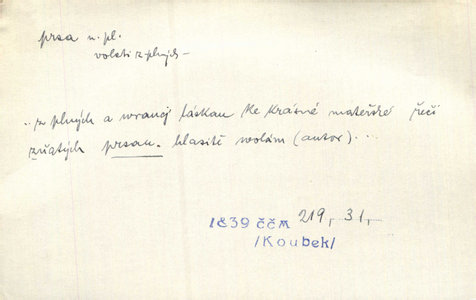 prsa n. pl.
volati z plných –
.. z plných a wrancj láskau ke krásné mateřské řeči
zňatých prsau. hlasitě wolám (autor) ...
1839 ččm 219, 31,
/Koubek/